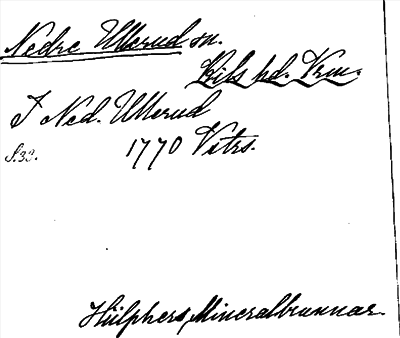 Nedre Ullerud sn.
Kils hd. Vrm.
I Ned. Ullerud
S.33. 1770 Vitrs.
Hülphers, Mineralbrunnar.